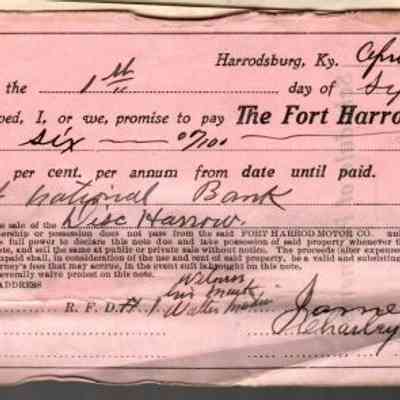 Harrodsburg, Ky.
the 1st day of
ved, I, or we, promise to pay The Fort Harro
six 0/100
per cent. per annum from date until paid.
National Bank
the sale of the Disc Harrow.
ership or possession does not pass from the said FORT HARROD MOTOR CO. un
s full power to declare this note due and take possession of said property whenever th
e, and sell the same at public or private sale without notice. The proceeds (after expenses
npaid shall, in consideration of the use and rent of said property, be a valid and subsisting
rney's fees that may accrue, in the event suit is brought on this note.
severally waive protest on this note.
ADDRESS
Witness
R. F. D. # 1
James
Charley